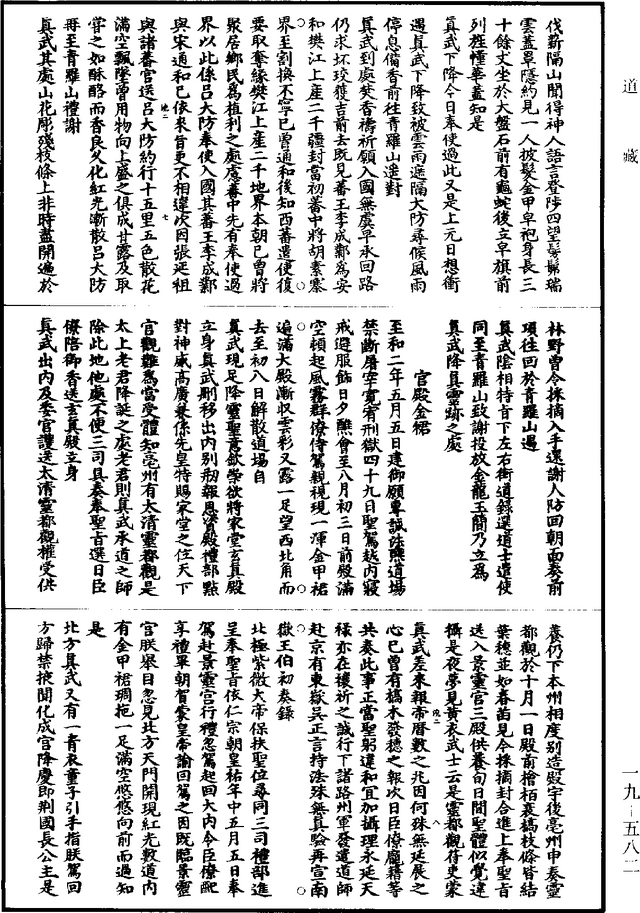 道藏
伐薪隔山聞得神人語言登陟四望髣髴瑞
雲蓋罩隱約見一人披髮金甲皁袍身長三
十餘丈坐於大盤石前有龜蛇後立皁旗前
列旌幢華蓋知是
真武下降今日奉使過此又是上元日想衝
遇真武下降致被雲雨遮隔大防尋候風雨
停息備香前往青羅山遙對
真武到處焚香禱祈願入國無虞早承回路
仍求坏珓獲吉前去既見蕃王李成鄴為安
和樊江上産二千疆封當初蕃中將胡素寨
界至劃換不寧已曾通和後知西蕃遣使復
要取奪緣樊江上産二千地界本朝已曾將
聚居鄉民為植利之處慮蕃中先有奉使過
界以此係呂大防奉使入國其蕃王李成鄴
與宋通和已依來旨更不相違次因張延祖
與諸蕃官送呂大防約行十五里五色散花
滿空飄墜曾用物向上盛之俱成甘露及取
嘗之如酥酪而香良久化紅光漸散呂大防
再至青羅山禮謝
真武其處山花彫殘枝條上非時盡開遍於
林野曾令採摘入手還謝人防回朝面奏前
項往回於青羅山遇
真武陰相特旨下左右街道錄選道士遣使
同至青羅山致謝投放金龍玉簡乃立為
真武降真靈跡之處
官殿金裙
至和二年五月五日建御願專誠法醮道場
禁斷屠宰寬宥刑獄四十九日聖駕越内寢
戒避服飾日夕醮會至八月初三日前殿滿
空頓起風霧群僚侍駕親視現一渾金甲裙
遍滿大殿漸収雲彩又露一足望西北角而
去至初八日解散道場自
真武現足降靈聖責欽學欲將家堂玄真殿
立身真武刪移出内别剏報恩溪殿禮部㸃
對神威高廣兼係先皇特賜家堂之位天下
官觀難為當受體知亳州有太清靈都觀是
太上老君降誕之處老君則真武承道之師
除此地他處不便三司具奏奉聖旨選日臣
僚陪御香送玄真殿立身
真武出内及委官護送太清靈都觀權受供
養仍下本州相度别造殿宇後亳州申奏靈
都觀於十月一日殿前檜栢衰槁枝條皆結
葉穂並如春苗見令採摘封合進上奉聖旨
送入景靈官三殿供養旬日間聖體似覺違
攝是夜夢見黄衣武士云是靈都觀符吏蒙
真武差來報帝曆數之兆因何殊無延展之
心已曾有槁木發穗之報次日臣僚龎籍等
共奏此事正當聖躬違和宜加攝理永延天
禄亦在禳祈之誠行下諸路州軍發遣道師
赴京有東嶽吴正言持法殊無真驗再宣南
嶽王伯初奏錄
北極紫微大帝保扶聖位尋同三司禮部進
呈奉聖旨依仁宗朝皇祐年中五月五日奉
駕赴景靈宫行禮忽駕起回大内令臣僚配
享禮畢朝賀蒙皇帝諭回駕之因既臨景靈
官朕舉目忽見北方天門開現紅光數道内
有金甲裙襴拖一足滿空悠悠向前而過知
是
北方真武又有一青衣童子引手指朕駕回
方歸禁掖聞化成宫降慶即荆國長公主是
一九—五八二